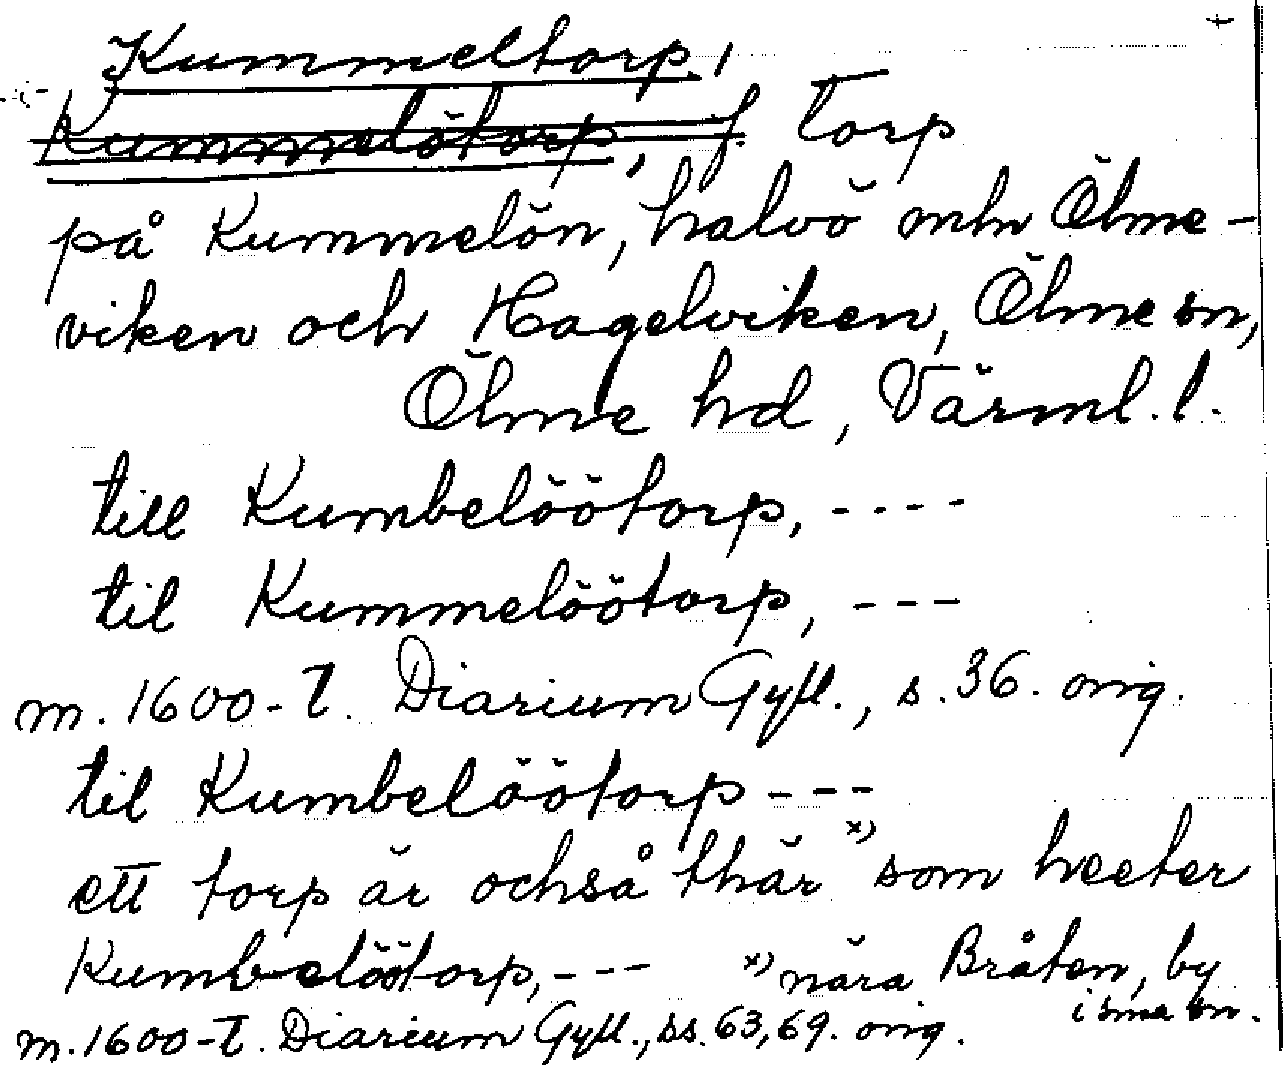 Kummeltorp,
Kummelötorp, f. torp
på Kummelön, halvö mln Ölme-
viken och Hagelviken, Ölme sn,
Ölme hd, Värml. l.
till Kumbelöötorp, ----
til Kummelöötorp, ---
m. 1600-t. Diarium Gyll., s. 36. orig.
til Kumbelöötorp ---
ett torp är ochså thär x) som heeter
Kumbelöötorp, --- x) nära Bråten, by
i sma sn.
m. 1600-t. Diarium Gyll., ss. 63, 69. orig.